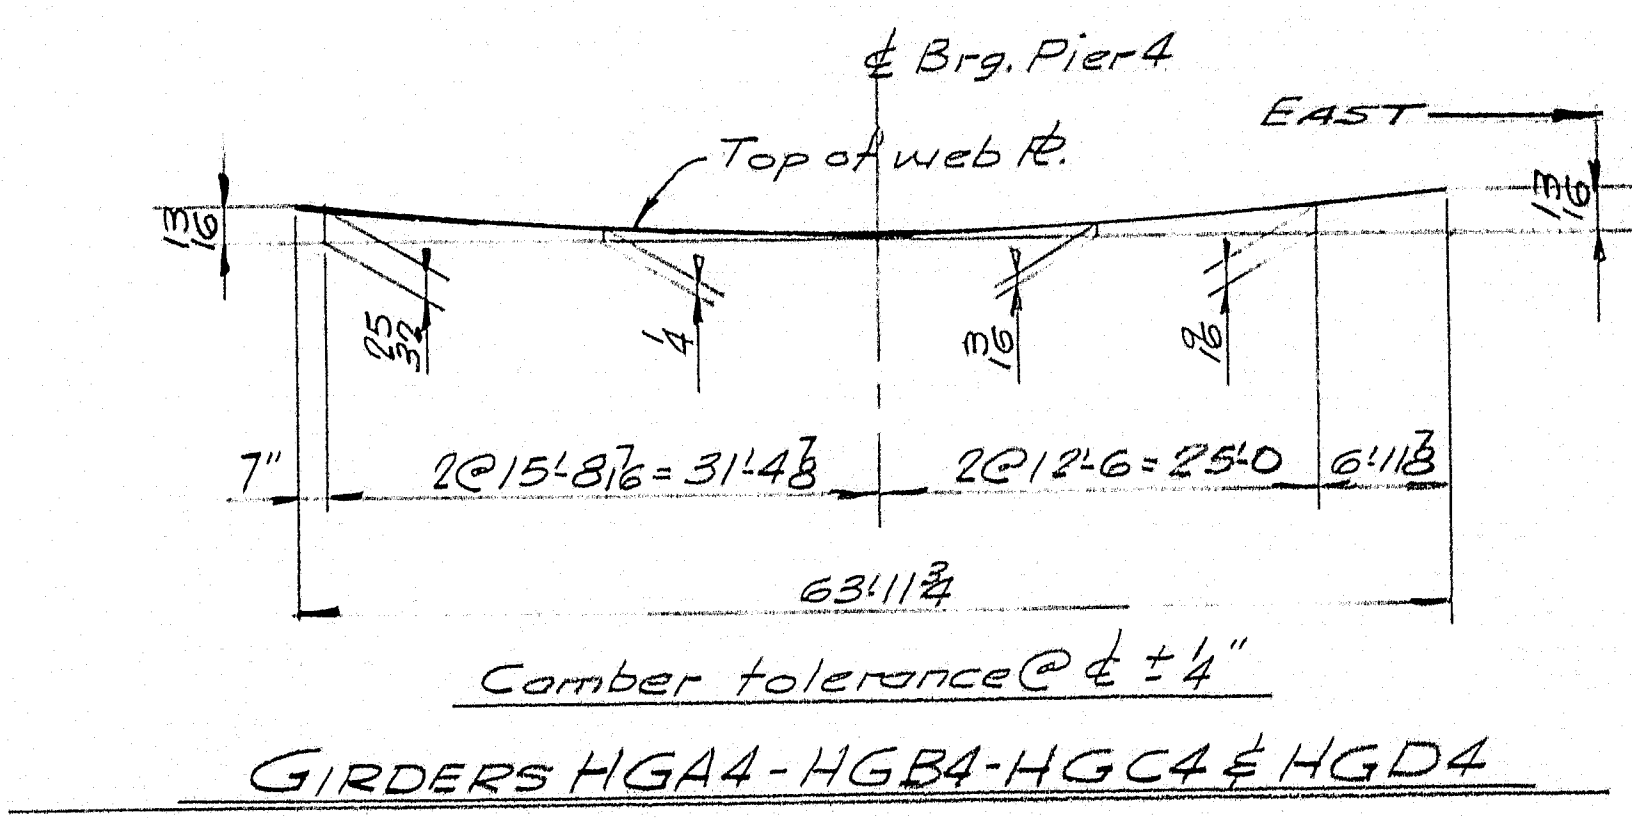 ℄ Brg. Pier 4
EAST
Top of web ℙ.
13/16
13/16
25/32
1/4
3/16
9/16
7"
2@15'-8 7/16 = 31'-4 7/8
2@12'-6 = 25'-0
6'-11 7/8
63'-11 3/4
Camber tolerance @ ℄ ± 1/4"
GIRDERS HGA4-HGB4-HGC4 & HGD4